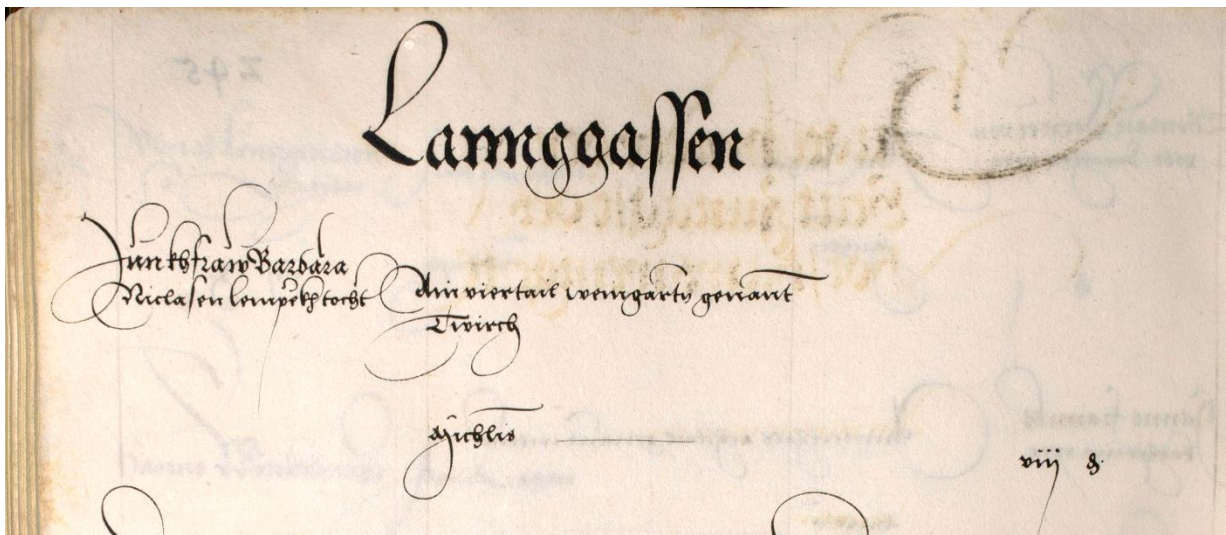 Lannggassen
Junkhfraw Barbara
Niclasen lempekh tocht
Ain viertail weingartn genant
Twirch
Michlis
viij d.